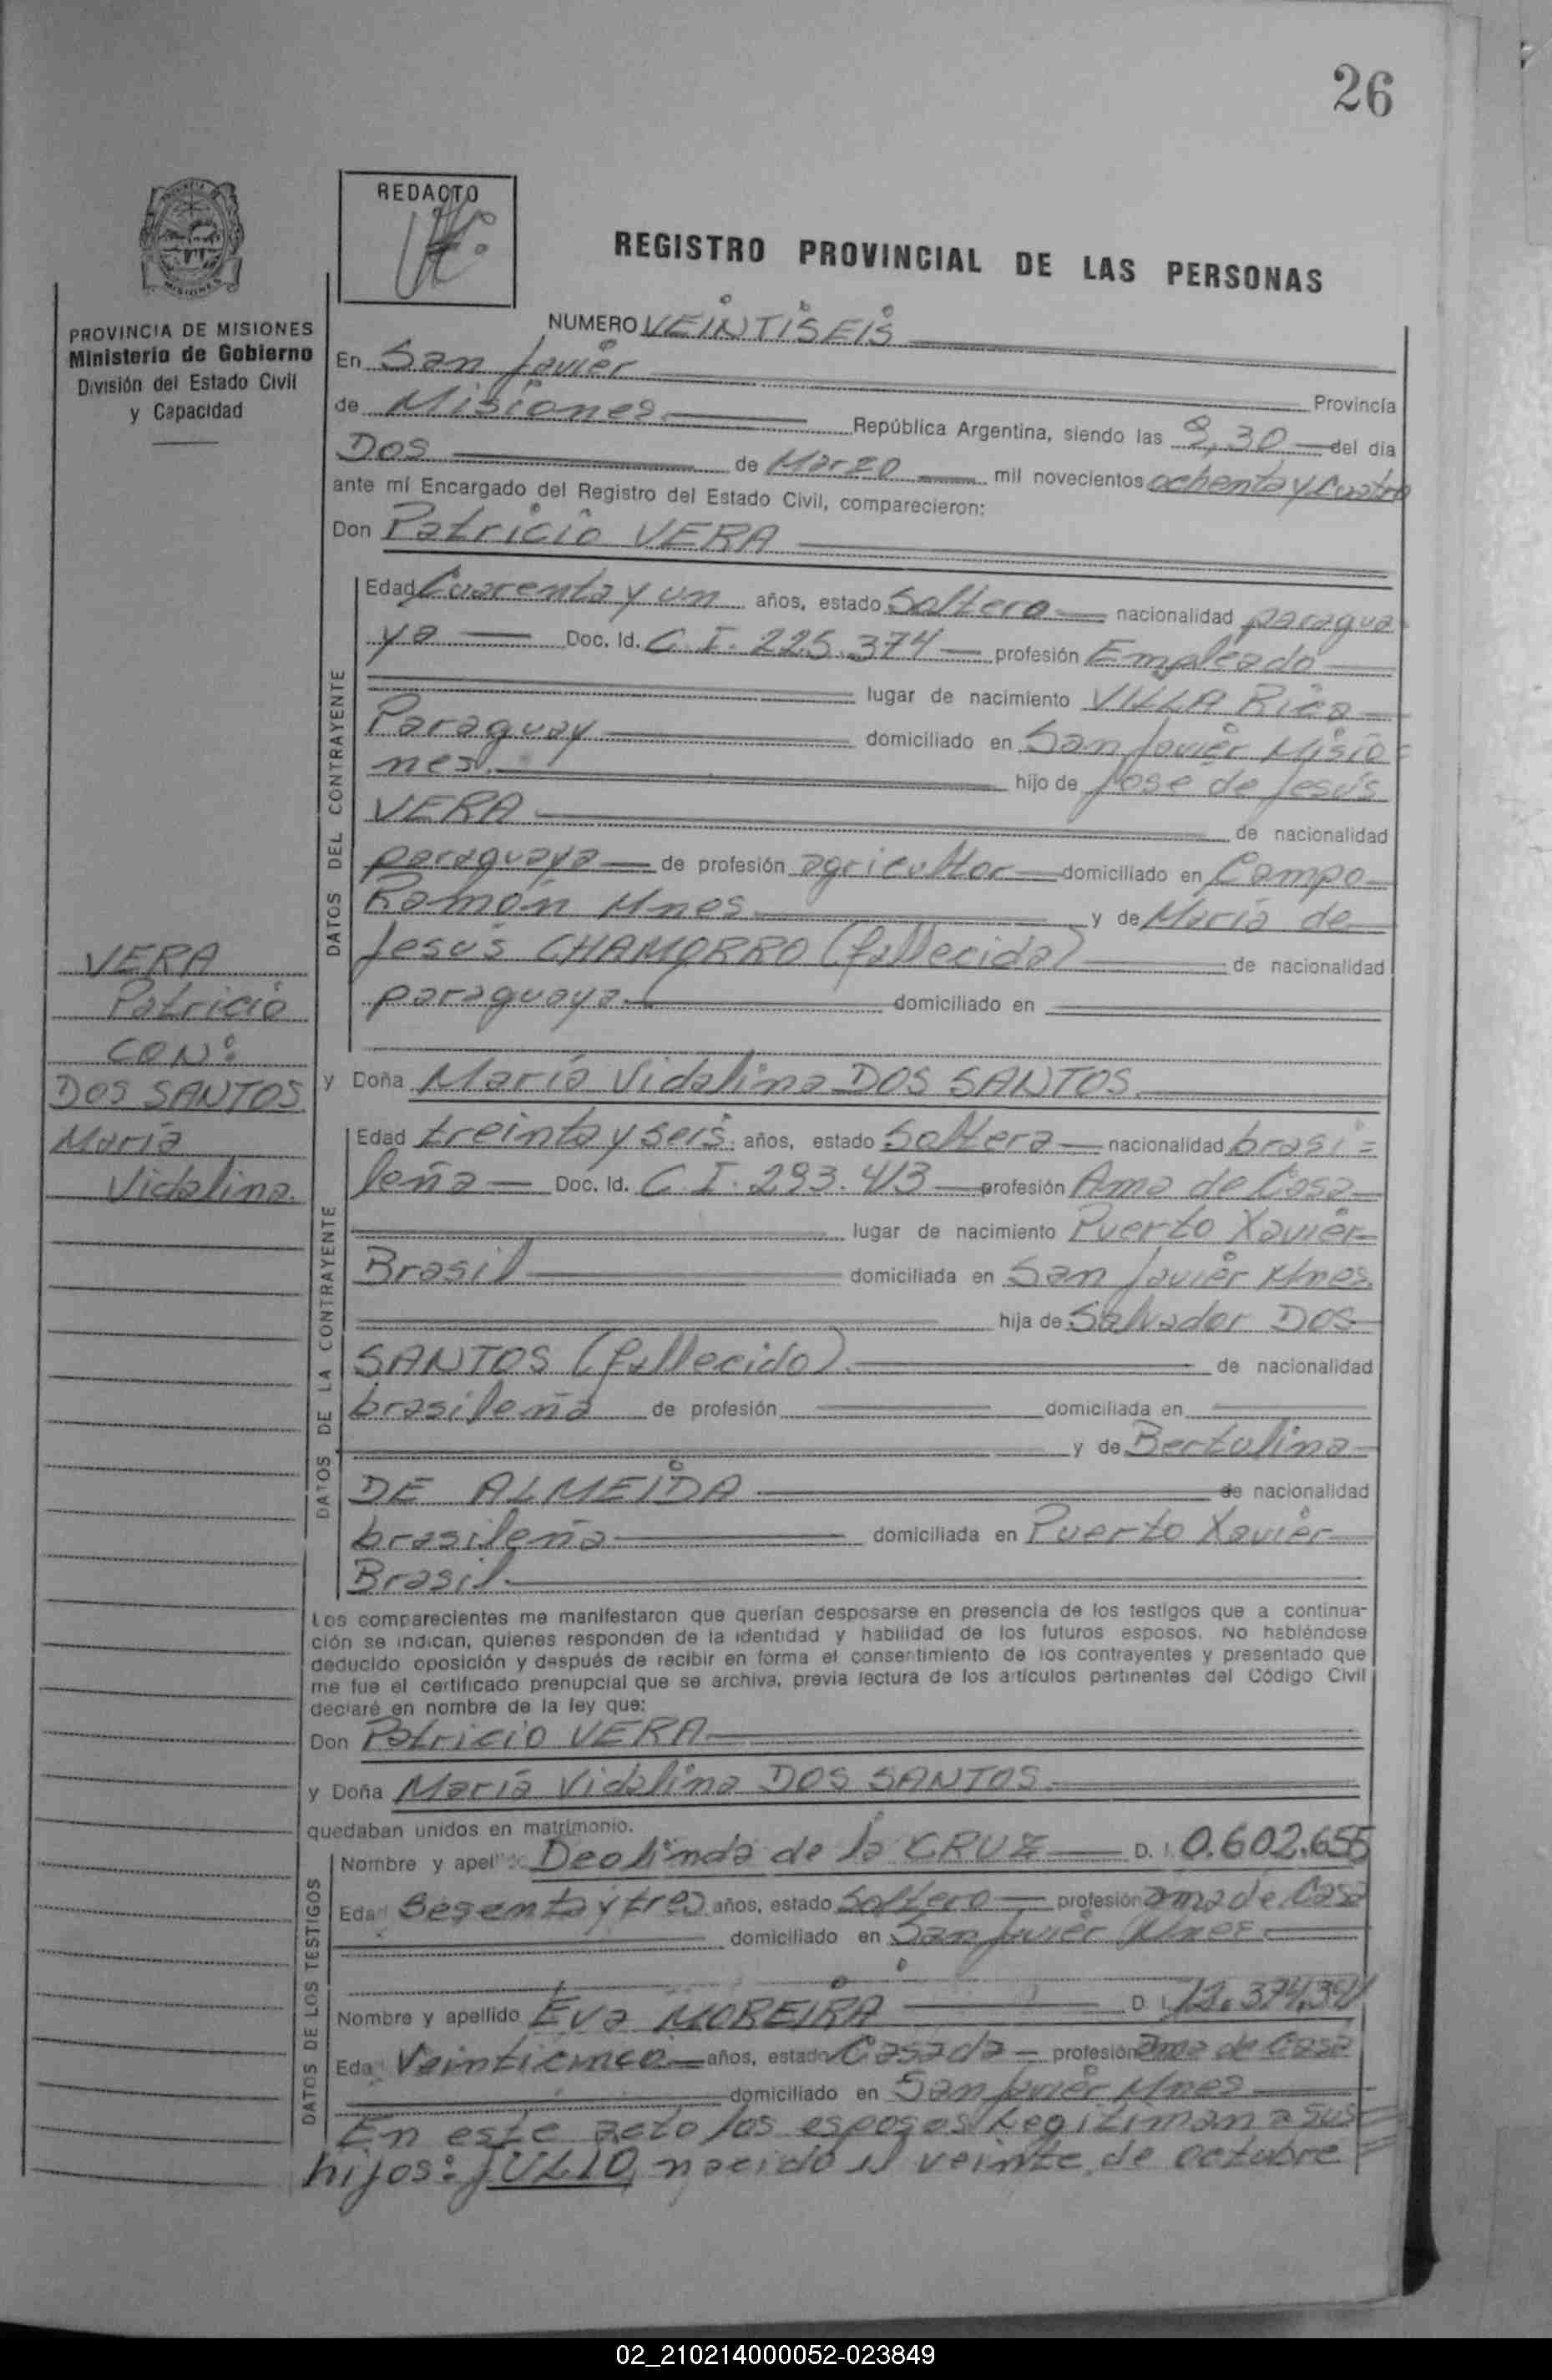 26
REDACTO
REGISTRO PROVINCIAL DE LAS PERSONAS
PROVINCIA DE MISIONES
Ministerio de Gobierno
División del Estado Civil
y Capacidad
NUMERO VEINTISEIS
En San Javier Provincia
de Misiones República Argentina, siendo las 9,30 del día
DOS de Marzo mil novecientos ochenta y cuatro
ante mí Encargado del Registro del Estado Civil, comparecieron:
Don Patricio VERA
DATOS DEL CONTRAYENTE
Edad Cuarenta y un años, estado Soltero nacionalidad paragua
ya Doc. Id. C.I. 225.374 profesión Empleado
lugar de nacimiento VILLA Rica
Paraguay domiciliado en San Javier Misio=
nes. hijo de José de Jesús
VERA de nacionalidad
paraguaya de profesión agricultor domiciliado en Campo
Ramón Mnes y de María de
Jesús CHAMORRO (fallecida) de nacionalidad
paraguaya domiciliado en
VERA
Patricio
CON:
DOS SANTOS
María
Vidalina.
y Doña María Vidalina DOS SANTOS
DATOS DE LA CONTRAYENTE
Edad treinta y seis. años, estado Soltera nacionalidad brasi=
leña Doc. Id. C.I. 293.413 profesión Ama de Casa
lugar de nacimiento Puerto Xavier
Brasil domiciliada en San Javier Mnes.
hija de Salvador DOS
SANTOS (fallecido). de nacionalidad
brasileña de profesión domiciliada en
y de Bertolina
DE ALMEIDA de nacionalidad
brasileña domiciliada en Puerto Xavier
Brasil.
Los comparecientes me manifestaron que querían desposarse en presencia de los testigos que a continua-
ción se indican, quienes responden de la identidad y habilidad de los futuros esposos. No habiéndose
deducido oposición y después de recibir en forma el consentimiento de los contrayentes y presentado que
me fue el certificado prenupcial que se archiva, previa lectura de los artículos pertinentes del Código Civil
declaré en nombre de la ley que:
Don Patricio VERA
y Doña María Vidalina DOS SANTOS.
quedaban unidos en matrimonio.
DATOS DE LOS TESTIGOS
Nombre y apel Deolinda de la CRUZ D. I. 0.602.655
Eda Sesenta y tres años, estado Soltero profesión ama de Casa
domiciliado en San Javier Mnes
Nombre y apellido Eva MOREIRA D. I. 12.374.341
Eda Veinticinco años, estado Casada profesión ama de Casa
domiciliado en San Javier Mnes
En este acto los esposos Legitiman a sus
hijos: JULIO, nacido el veinte de octubre
02_210214000052-023849